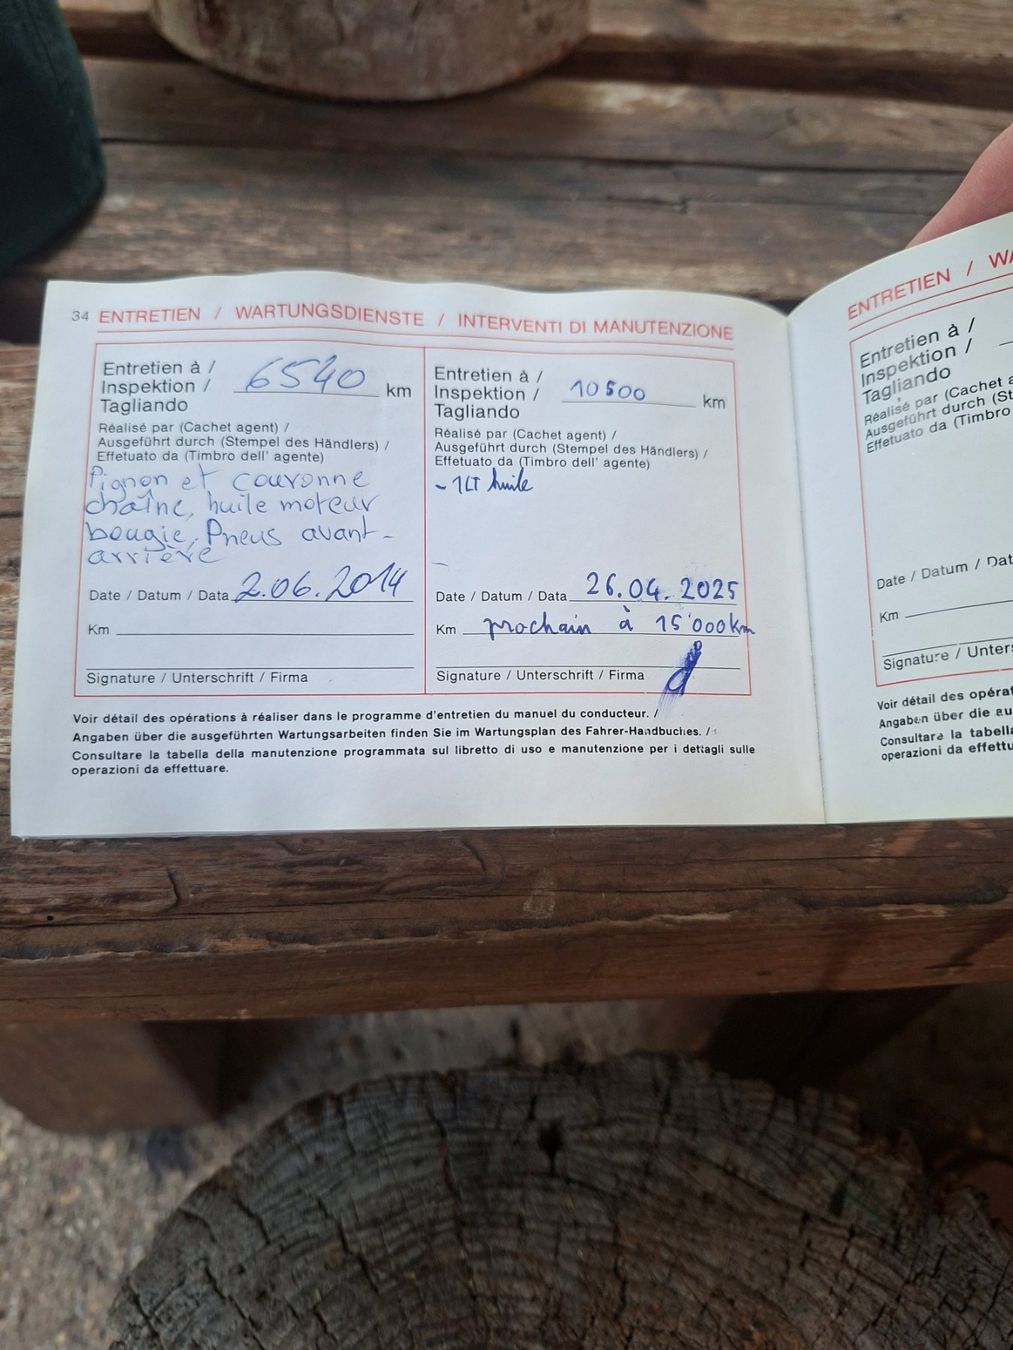 34 ENTRETIEN / WARTUNGSDIENSTE / INTERVENTI DI MANUTENZIONE
Entretien à /
Inspektion / 6540 km
Tagliando
Réalisé par (Cachet agent) /
Ausgeführt durch (Stempel des Händlers) /
Effetuato da (Timbro dell' agente)
Pignon et couronne
chaîne, huile moteur
bougie, Pneus avant-
arrière
Date / Datum / Data 2.06.2014
Km
Signature / Unterschrift / Firma
Entretien à /
Inspektion / 10500 km
Tagliando
Réalisé par (Cachet agent) /
Ausgeführt durch (Stempel des Händlers) /
Effetuato da (Timbro dell' agente)
- 1LT huile
Date / Datum / Data 26.04.2025
Km prochain à 15'000km
Signature / Unterschrift / Firma
Voir détail des opérations à réaliser dans le programme d'entretien du manuel du conducteur. /
Angaben über die ausgeführten Wartungsarbeiten finden Sie im Wartungsplan des Fahrer-Handbuches. /
Consultare la tabella della manutenzione programmata sul libretto di uso e manutenzione per i dettagli sulle
operazioni da effettuare.
ENTRETIEN /
Entretien à /
Inspektion /
Tagliando
Réalisé par (Cachet
Ausgeführt durch
Effetuato da
Date / Datum /
Km
Signature /
Voir détail des
Angaben über die
Consultare la
operazioni da